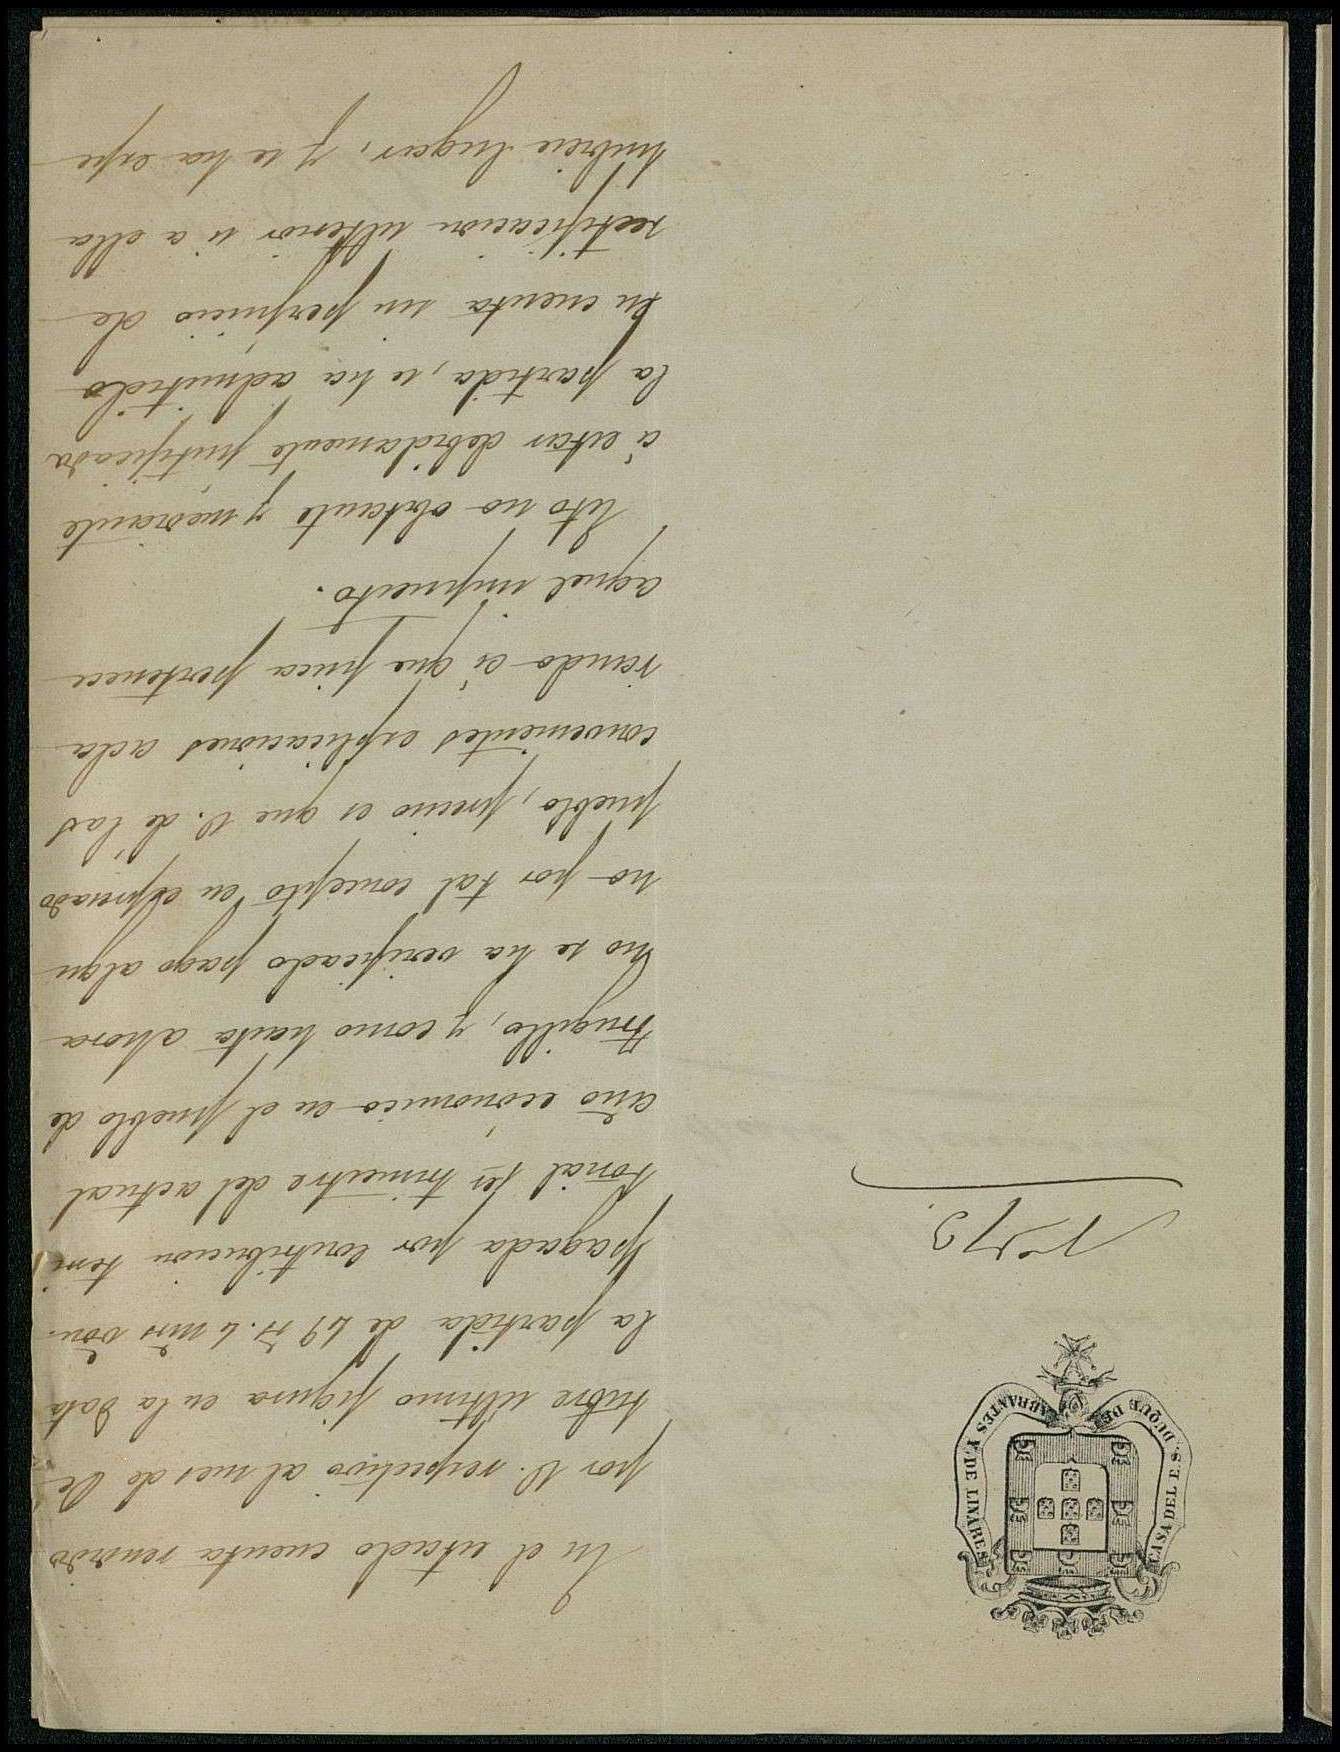 CASA DEL E. S. DUQUE DE ABRANTES Y DE LINARES
Nº 73.
En el estado cuenta rendido
por V. respectivo al mes de Oc
tubre último figura en la data
la partida de 49 rs. 4 mrs von.
pagada por contribucion terri
torial 1er trimestre del actual
año económico en el pueblo de
Trugillo, y como hasta ahora
no se ha verificado pago algu
no por tal concepto en espresado
pueblo, preciso es que V. dé las
convenientes esplicaciones acla
rando á que finca pertenece
aquel impuesto.
Esto no obstante y mediante
á estar debidamente justificada
la partida, se ha admitido
en cuenta sin perjuicio de
rectificacion ulterior si a ella
hubiere lugar, y se ha espe